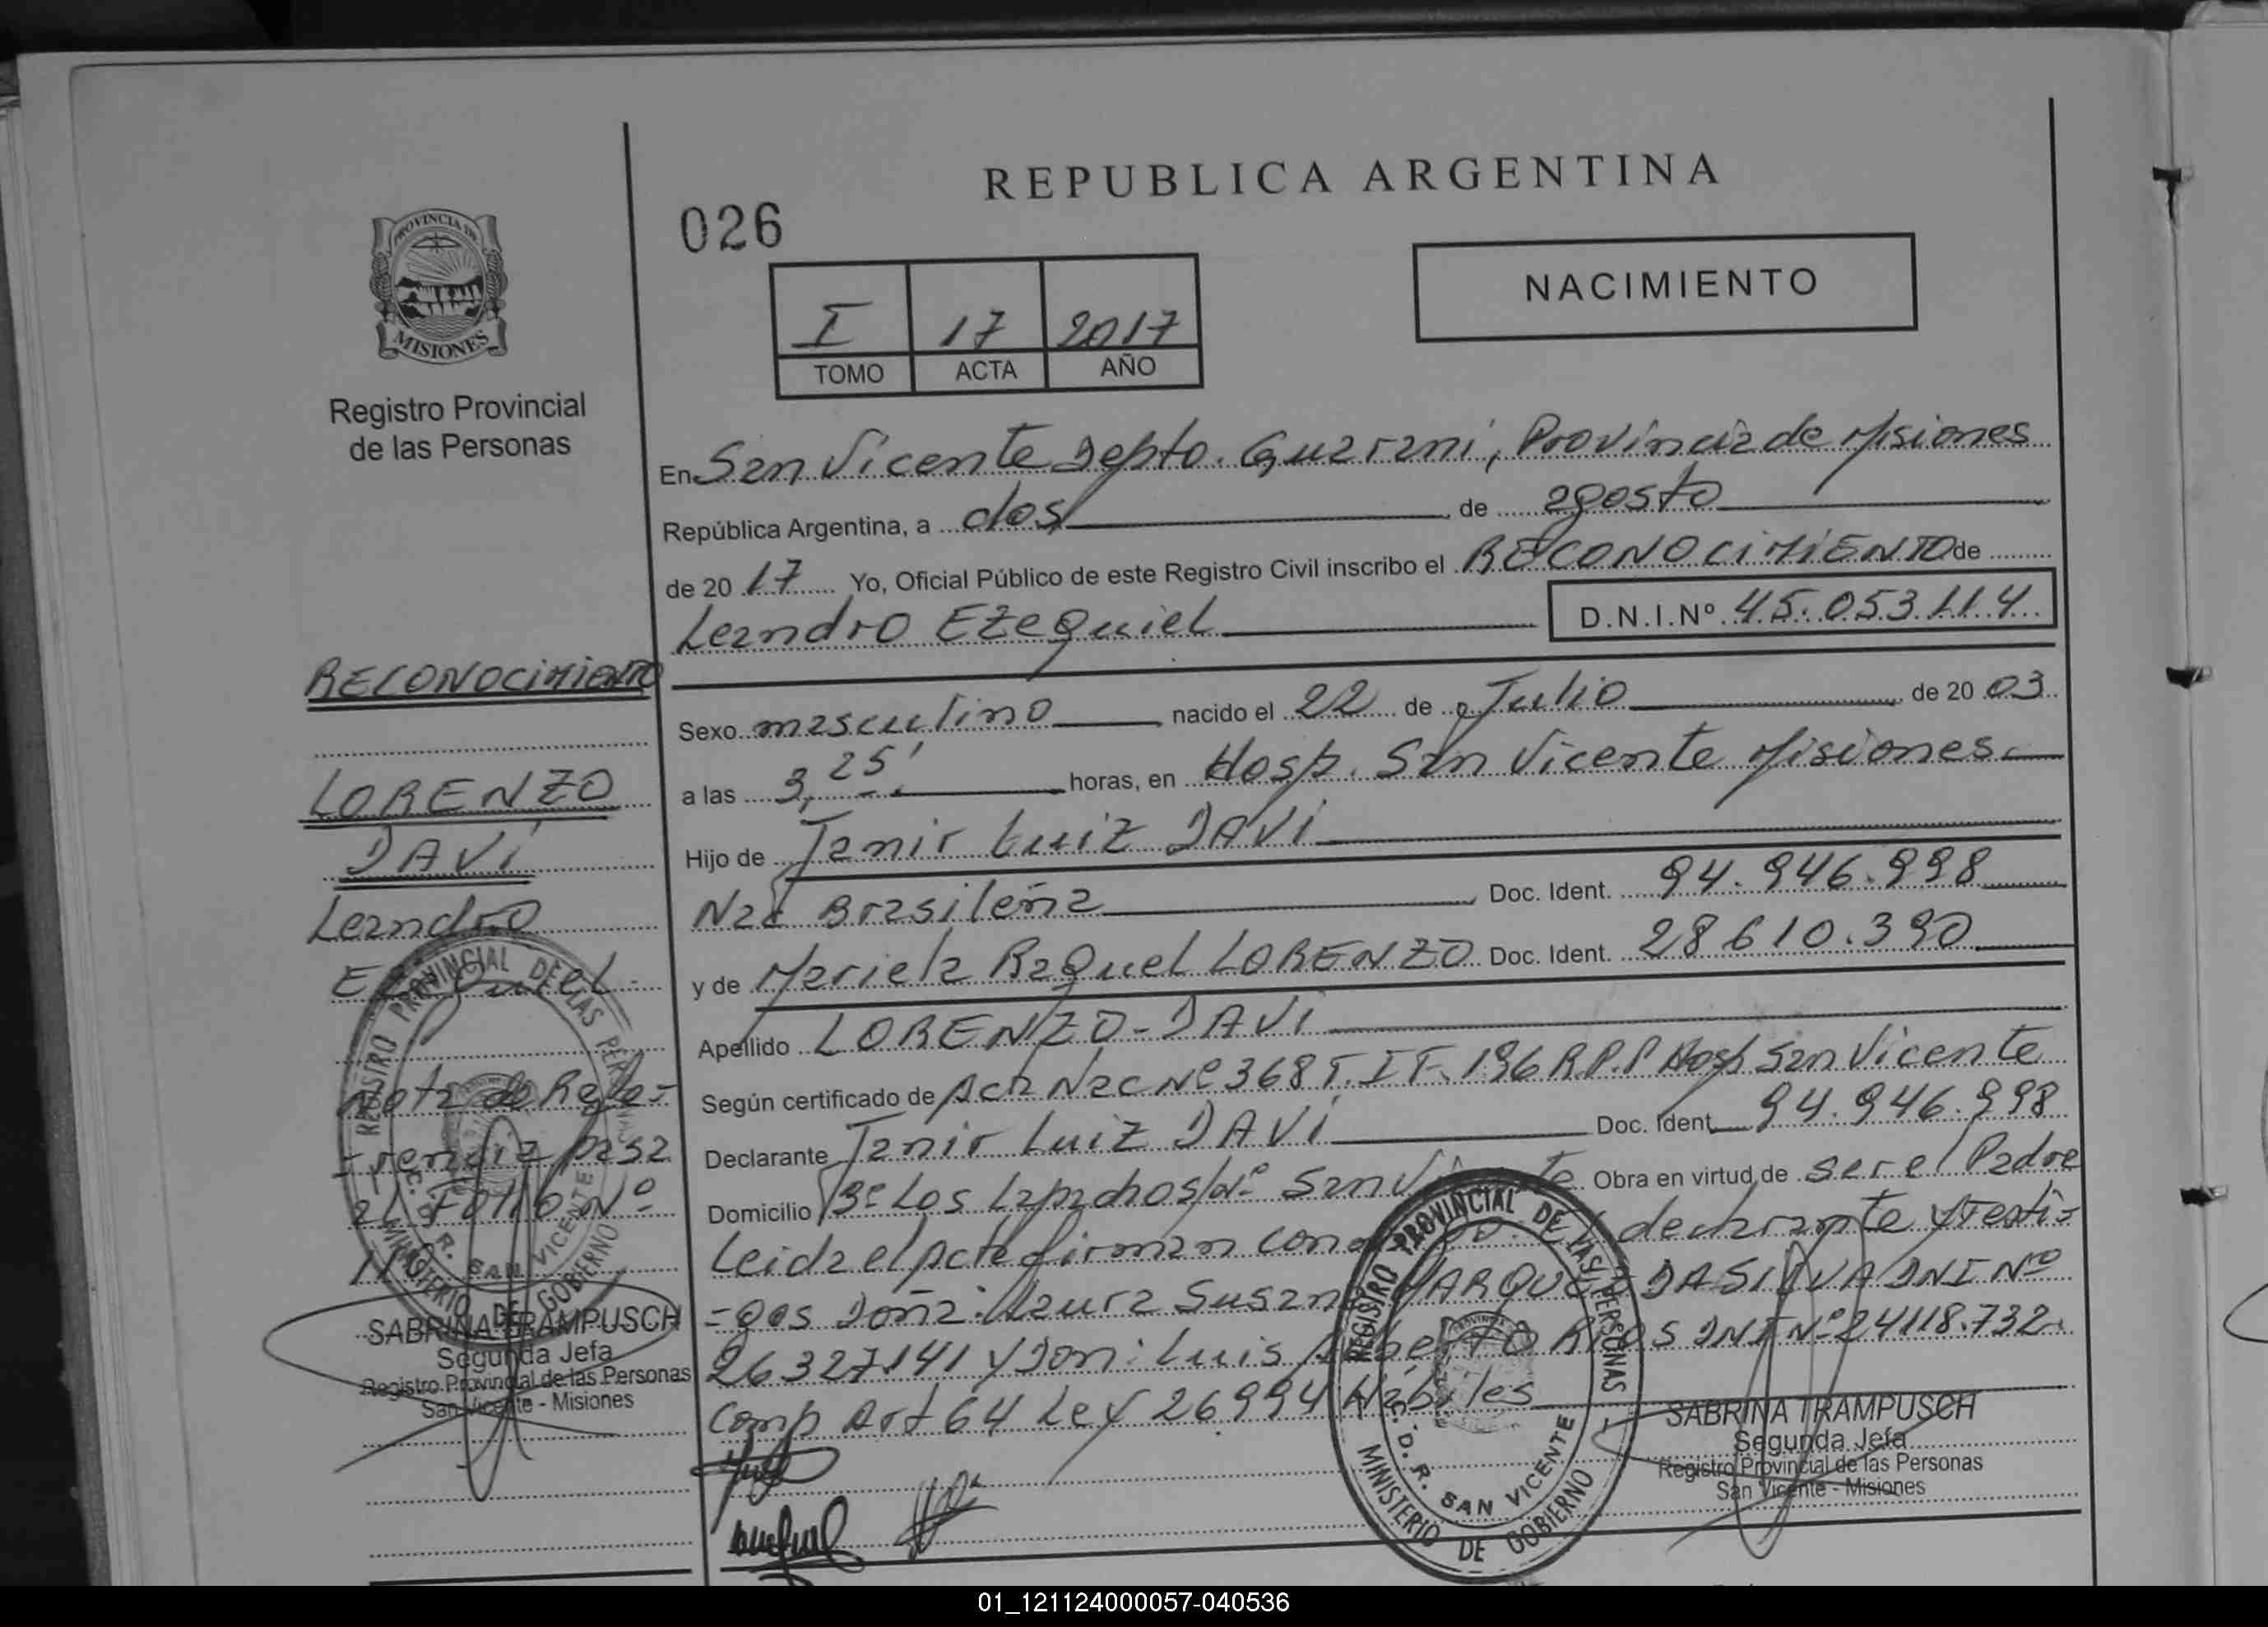 REPUBLICA ARGENTINA
026
NACIMIENTO
PROVINCIA DE
MISIONES
I 17 2017
TOMO ACTA AÑO
Registro Provincial
de las Personas
En San Vicente Depto. Guarani, Provincia de Misiones
República Argentina, a dos de agosto
de 20 17 Yo, Oficial Público de este Registro Civil inscribo el RECONOCIMIENTO de
Leandro Ezequiel D.N.I.Nº 45.053.114
Sexo masculino nacido el 22 de Julio de 20 03
a las 3,25' horas, en Hosp. San Vicente Misiones
Hijo de Janir Luiz DAVI
Nac Brasileña Doc. Ident. 94.946.998
y de Mariela Raquel LORENZO Doc. Ident. 28610.390
Apellido LORENZO-DAVI
Según certificado de Acta Nac Nº 368 T.I F. 196 R.P.P Hosp San Vicente
Declarante Janir Luiz DAVI Doc. Ident. 94.946.998
Domicilio Bº Los Lapachos San Obra en virtud de ser el Padre
Leida el Acta firman El declarante y Testi-
-gos Doña: Laura Susana MARQUEZ DA SILVA DNI Nº
26327141 y Don: Luis Alberto RIOS DNI Nº 24118.732
Comp Art 64 Ley 26994 Hábiles
RECONOCIMIENTO
LORENZO
DAVI
Leandro
Ezequiel
Nota de Refe-
-rencia pasa
al Folio Nº
REGISTRO PROVINCIAL DE LAS PERSONAS
C. D. R. SAN VICENTE
MINISTERIO DE GOBIERNO
SABRINA TRAMPUSCH
Segunda Jefa
Registro Provincial de las Personas
San Vicente - Misiones
REGISTRO PROVINCIAL DE LAS PERSONAS
C. D. R. SAN VICENTE
MINISTERIO DE GOBIERNO
SABRINA TRAMPUSCH
Segunda Jefa
Registro Provincial de las Personas
San Vicente - Misiones
01_121124000057-040536